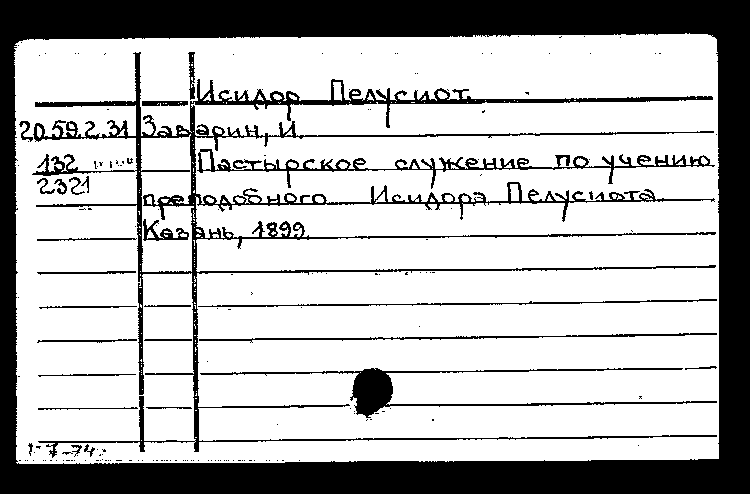 Исидор Пелусиот.
20.59.2.31 Заварин, И.
132 Пастырское служение по учению
2321
преподобного Исидора Пелусиота
Казань, 1899
1-7-74.